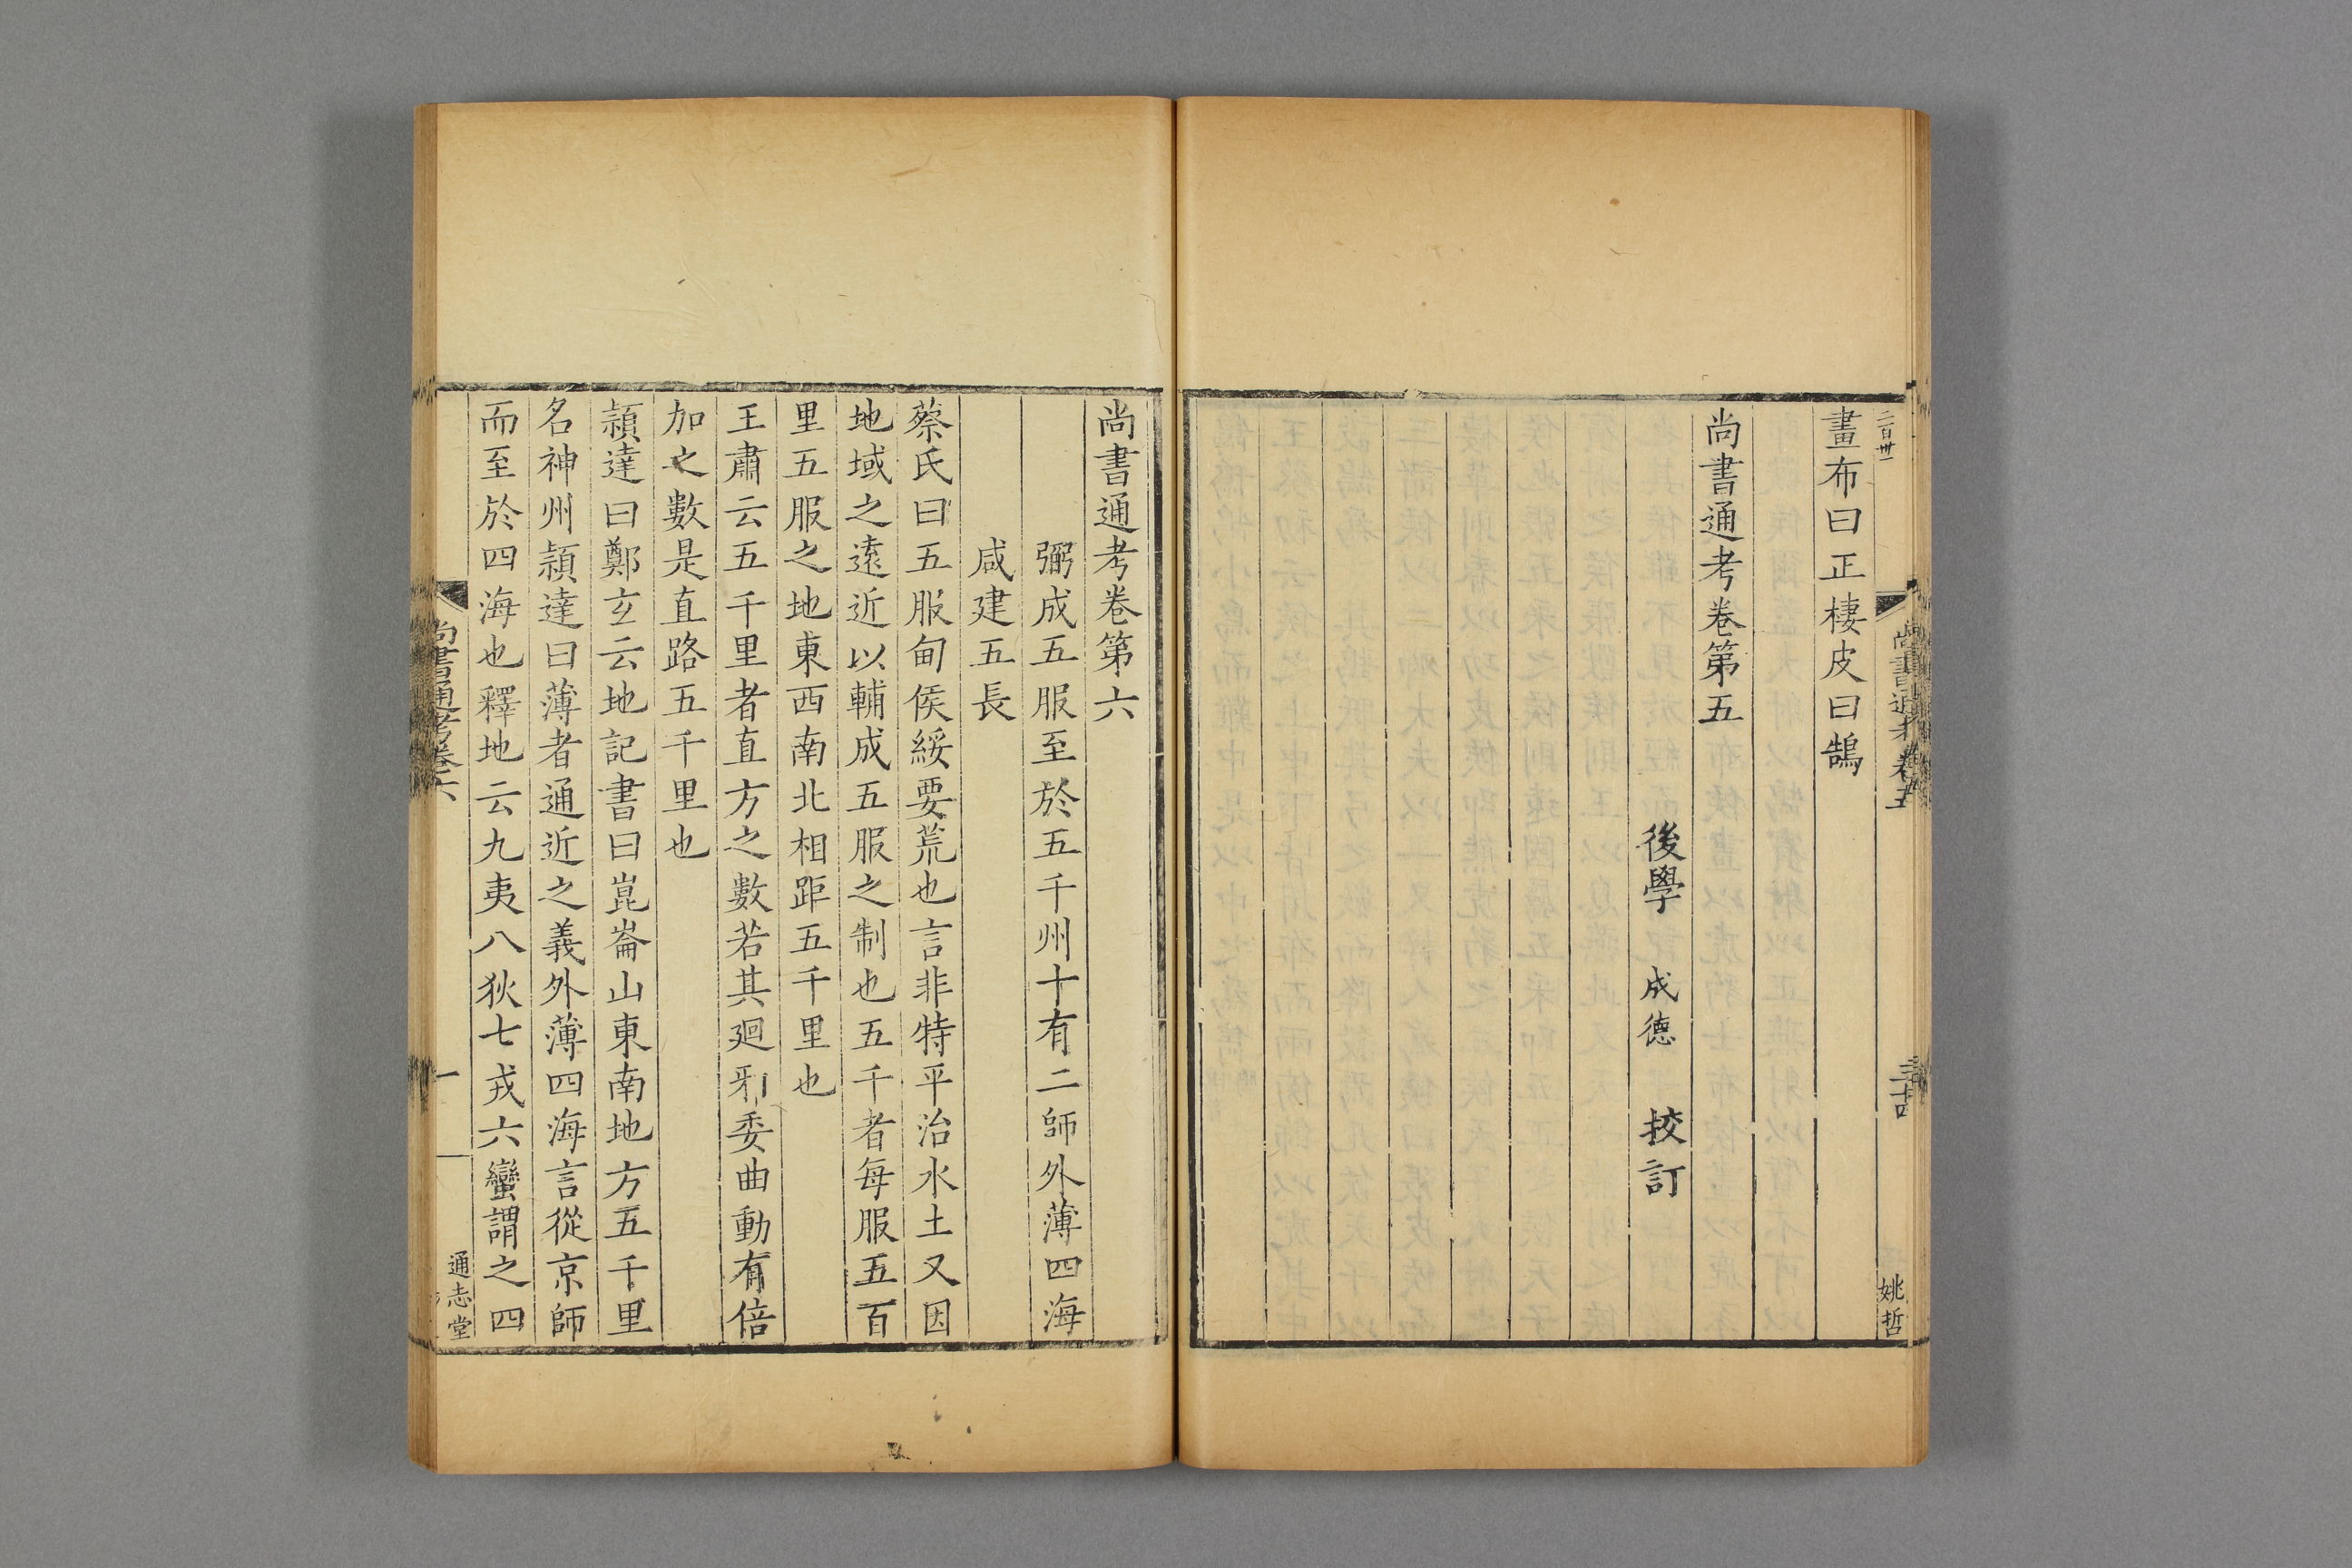 二百卅一
尚書通考卷五
三十四
姚哲
畫布曰正棲皮曰鵠
尚書通考卷第五
後學 成德 挍訂
尚書通考卷第六
弼成五服至於五千州十有二師外薄四海
咸建五長
蔡氏曰五服甸侯綏要荒也言非特平治水土又因
地域之遠近以輔成五服之制也五千者每服五百
里五服之地東西南北相距五千里也
王肅云五千里者直方之數若其廻邪委曲動有倍
加之數是直路五千里也
穎達曰鄭玄云地記書曰崑崙山東南地方五千里
名神州穎達曰薄者通近之義外薄四海言從京師
而至於四海也釋地云九夷八狄七戎六蠻謂之四
尚書通考卷六
一
通志堂